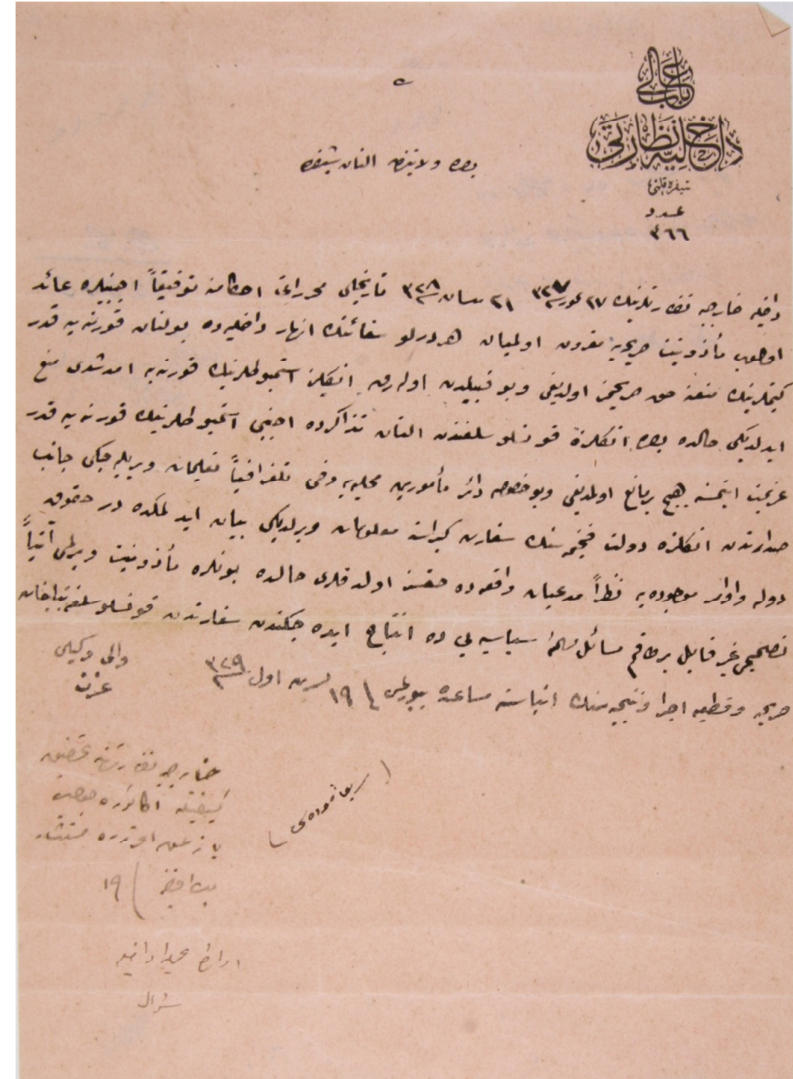 باب عالی
داخلیه نظارتی
شیفره قلمی
عدد
٣٦٦
بصره ولایتندن آلنان شیفره
داخلیه خارجیه نظارتلرینك ٢٧ تموز ٣٢٧ ٢١ نیسان ٣٢٨ تاریخلی محرراتی احكامنه توفیقاً اجنبیلره عائد
اولوب مأذونیت صریحه‌یه مقرون اولمیان هر درلو سفائنك انهار داخلیه‌ده بولنان قورنه‌یه قدر
كیتملرینك منعنه حق صریحمز اولدیغی وبو قبیلدن اوله‌رق انكلیز استمبوطلرینك قورنه‌یه آمدشدی منع
ایدلدیكی حالده بصره انكلتره قونسلوسلغندن آلنان تذكره‌ده اجنبی استمبوطلرینك قورنه‌یه قدر
عزیمت ایتمسنه هیچ بر مانع اولمدیغی وبو خصوصه دائر مأمورین محلیه‌یه وقتی تلغرافیاً تعلیمات ویریله‌جكی جانب
صدارتدن انكلتره دولت فخیمه‌سنك سفارت كبراسنه معلومات ویرلدیكی بیان ایدلمكده‌در حقوق
دوله واوامر موجوده‌یه نظراً مدعیات واقعه‌ده حقسز اولدقلری حالده بونلره مأذونیت ویرلمسی آتیاً
تصحیحی غیر قابل بر طاقم مسائل مهمهٔ سیاسیه‌یی ده انتاج ایده‌جكندن سفارتدن قونسلوسلغه تبلیغات
صریحه وقطعیه اجرا ونتیجه‌سنك انباسنه مساعده بیورلمسی ١٩ تشرین اول ٣٢٩
والی وكیلی
عزت
خارجیه نظارتنه
١٩